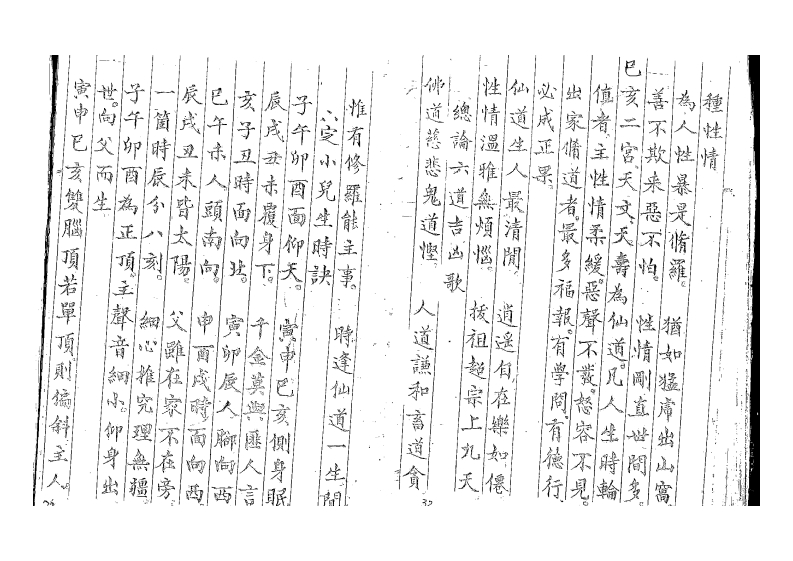 種性情
為人性暴是脩羅。 猶如猛虎出山窩
善不欺来惡不怕。 性情剛直世間多。
巳亥二宮天文天壽為仙道。凡人生時輪
值者主性情柔緩。惡聲不發怒容不見。
出家脩道者。最多福報。有學問有德行
必成正果。
仙道生人最清閒 逍遥自在樂如僊
性情溫雅無煩惱。 拔祖超宗上九天
總論六道吉凶歌
佛道慈悲鬼道慳。 人道謙和畜道貪
惟有修羅能主事。 時逢仙道一生閒
六定小兒生時訣
子午卯酉面仰天。 寅申巳亥側身眠
辰戌丑未覆身下。 千金莫與匪人言
亥子丑時面向北。 寅卯辰人腳向西
巳午未人頭南向。 申酉戌時面向西
辰戌丑未皆太陽。 父雖在家不在旁
一箇時辰分八刻。 細心推究理無疆
子午卯酉為正頂。主聲音細小。仰身出
世。向父而生
寅申巳亥雙腦頂若單頂則偏斜主人
32